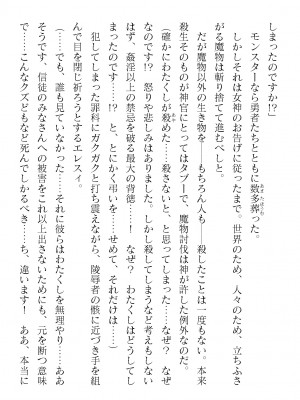 しまったのですか!?
モンスターなら勇者たちとともに数多葬った。
しかしそれは女神のお告げに従ったまで。世界のため、人々のため、立ちふさ
がる魔物は斬り捨てて進むべしと。
だが魔物以外の生き物を――もちろん人も――殺したことは一度もない。本来
殺生そのものが神官にとってはタブーで、魔物討伐は神が許した例外なのだ。
（確かにわたくしが殺めた……殺さないと、と思ってしまった……なぜ？　なぜ
なのです!?　怒りや悲しみはありました。しかし殺してしまうなど考えもしない
はず、姦淫以上の禁忌を破る最大の背徳……！　なぜ？　わたくしはどうしてし
まったのです……!?　と、とにかく弔いを……せめて、それだけは……）
犯してしまった罪科にガクガクと打ち震えながら、陵辱者の骸に近づき手を組
んで目を閉じ祈ろうとするエレスィ。
（……でも、誰も見ていなかった……それに彼らはわたくしを無理やり……ああ
そうです、信徒のみなさんへの被害をこれ以上出さないためにも、元を断つ意味
で……こんなクズどもなど死んでしかるべき……ち、違います！　ああ、本当に